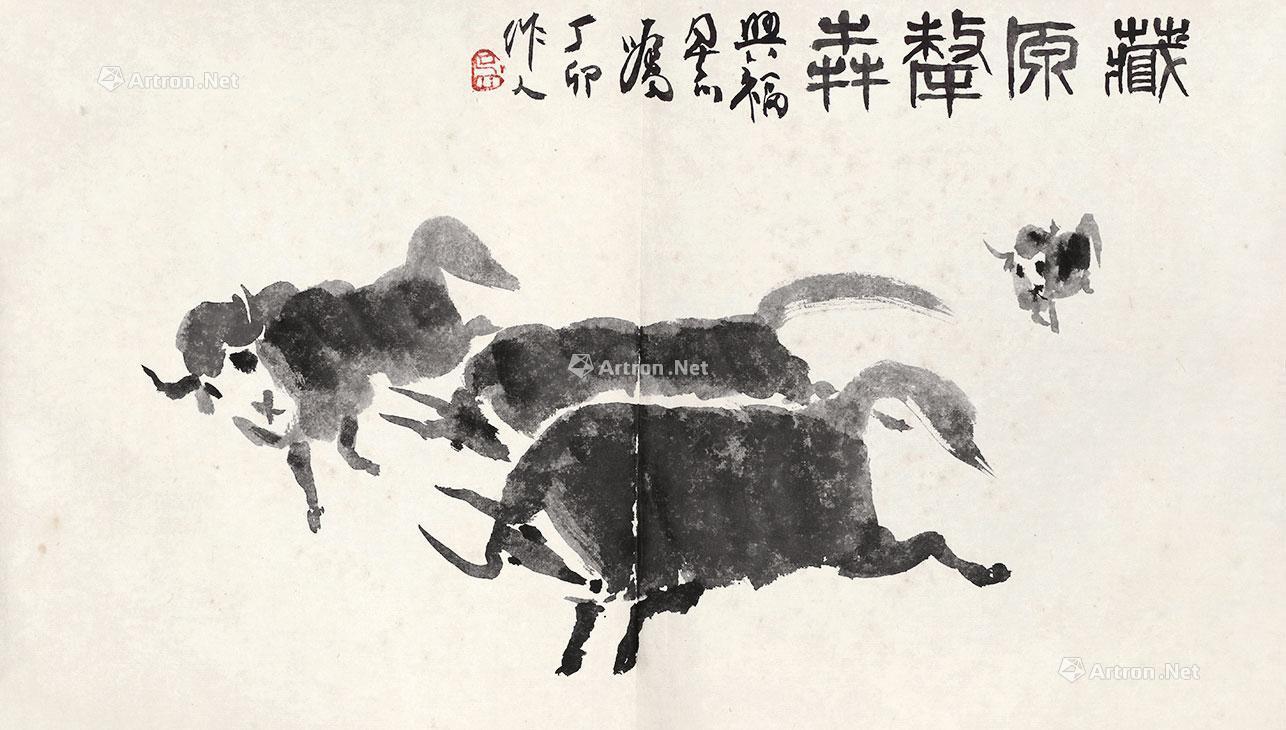 藏原犛犇
興福
丁卯
作人
Artron.Net
Artron.Net
Artron.Net
Artron.Net